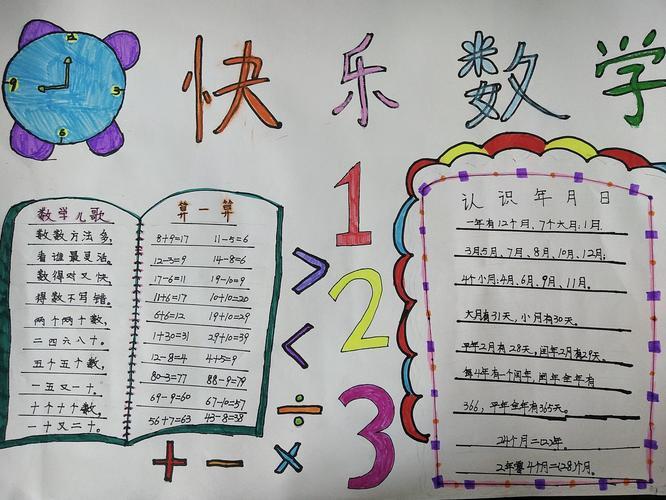 快乐数学
12
3
6
9
数学儿歌
数数方法多,
看谁最灵活。
数得对又快,
得数不写错。
两个两个数,
二四六八十。
五个五个数,
一五又一十。
十个十个数,
一十又二十。
算一算
8+9=17 11-5=6
12-3=9 14-8=6
17-6=11 19-10=9
11+6=17 10+10=20
6+6=12 19+10=29
1+30=31 29+10=39
12-8=4 4+5=9
80-3=77 88-9=79
69-9=60 67-10=57
56+7=63 43-8=38
1
2
3
>
<
÷
+ - ×
认识年月日
一年有12个月、7个大月:1月、
3月、5月、7月、8月、10月、12月;
4个小月:4月、6月、9月、11月。
大月有31天,小月有30天。
平年2月有28天;闰年2月有29天。
每4年有一个闰年,闰年全年有
366,平年全年有365天。
24个月=(2)年。
2年零4个月=(28)个月。